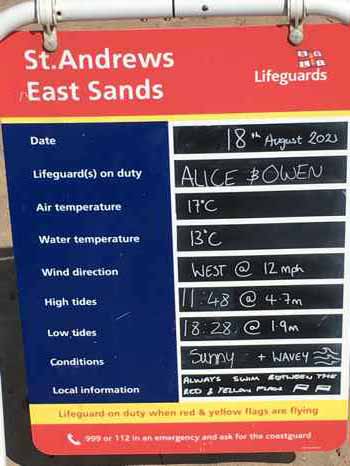 St.Andrews
East Sands
RNLI
Lifeguards
Date 18th August 2023
Lifeguard(s) on duty ALICE & OWEN
Air temperature 17°C
Water temperature 13°C
Wind direction WEST @ 12 mph
High tides 11:48 @ 4.7m
Low tides 18:28 @ 1.9m
Conditions Sunny + WAVEY
Local information ALWAYS SWIM BETWEEN THE
RED & YELLOW FLAGS
Lifeguard on duty when red & yellow flags are flying
999 or 112 in an emergency and ask for the coastguard